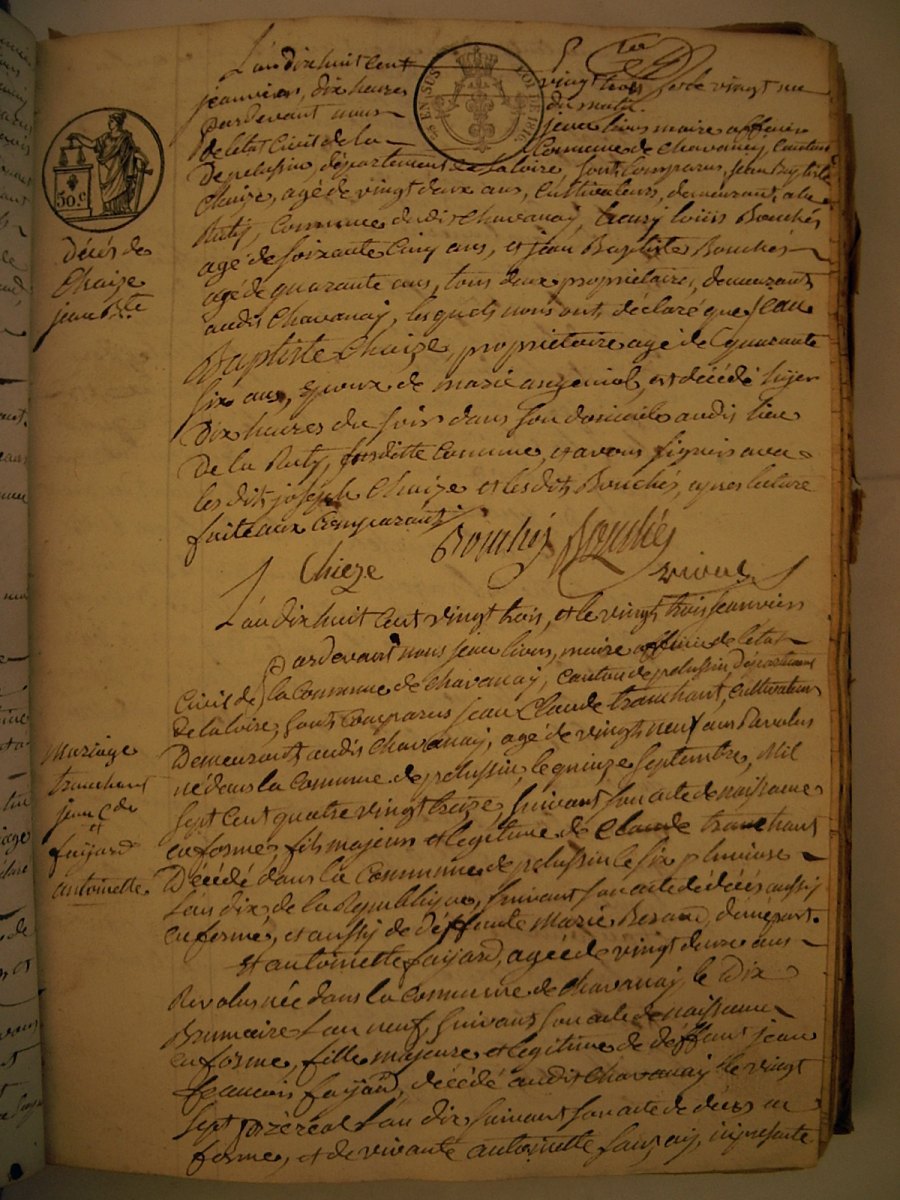 L'an dix huit cent vingt trois et le vingt un
jeanvier, dix heures du matin
pardevant nous jean livus maire officier
de l'état Civil de la Commune de Chavanay, Canton
De pelussin, département de la loire, sont comparus, jean Baptiste
Chaize, agé de vingt deux ans, Cultivateur, demeurant a la
Ruty, Commune dudit Chavanay, louis Bouchés
agé de soixante cinq ans, et jean Baptiste Bouchés
agé de quarante ans, tous deux propriétaires, demeurant
audit Chavanay, lesquels nous ont déclaré que jean
Baptiste Chaize, propriétaire agé de quarante
six ans, epoux de marie angeniol, est décédé hyer
Dix heures du soir dans son domicile audit lieu
De la Ruty, susditte Commune, et avons signés avec
les dits joseph Chaize et les dits Bouchés, apres lecture
faite aux Comparants
Chieze Bouchés Bouchés
50 c
Décés de
Chaize
jean Bte
L'an dix huit Cent vingt trois, et le vingt trois jeanvier
Pardevant nous jean livus, maire officier de l'état
Civil de la Commune de Chavanay, canton de pelussin, Département
De la loire, sont Comparus jean Claude tranchant, cultivateur
Demeurant audit Chavanay, agé de vingt neuf ans Revolus
né dans la Commune de pelussin, le quinze Septembre, Mil
Sept Cent quatre vingt treize, suivant son acte de naissance
en forme, fils majeur et legitime de Claude tranchant
Décédé dans la Commune de pelussin le six pluviose
L'an dix de la Republique, suivant son acte de décés aussy
en forme, et aussy de deffunte Marie Beraud, d'une part.
Et antoinette faijard, agée de vingt deux ans
Revolus née dans la Commune de Chavanay le Dix
Brumaire L'an neuf, suivant son acte de naissance
en forme, fille majeure et legitime de deffunt jean
francois faijard, décédé audit Chavanay le vingt
Sept L'an dix suivant son acte de décés en
forme, et de vivante antoinette ici présente
Mariage
tranchant
jean Cde
et
faijard
antoinette